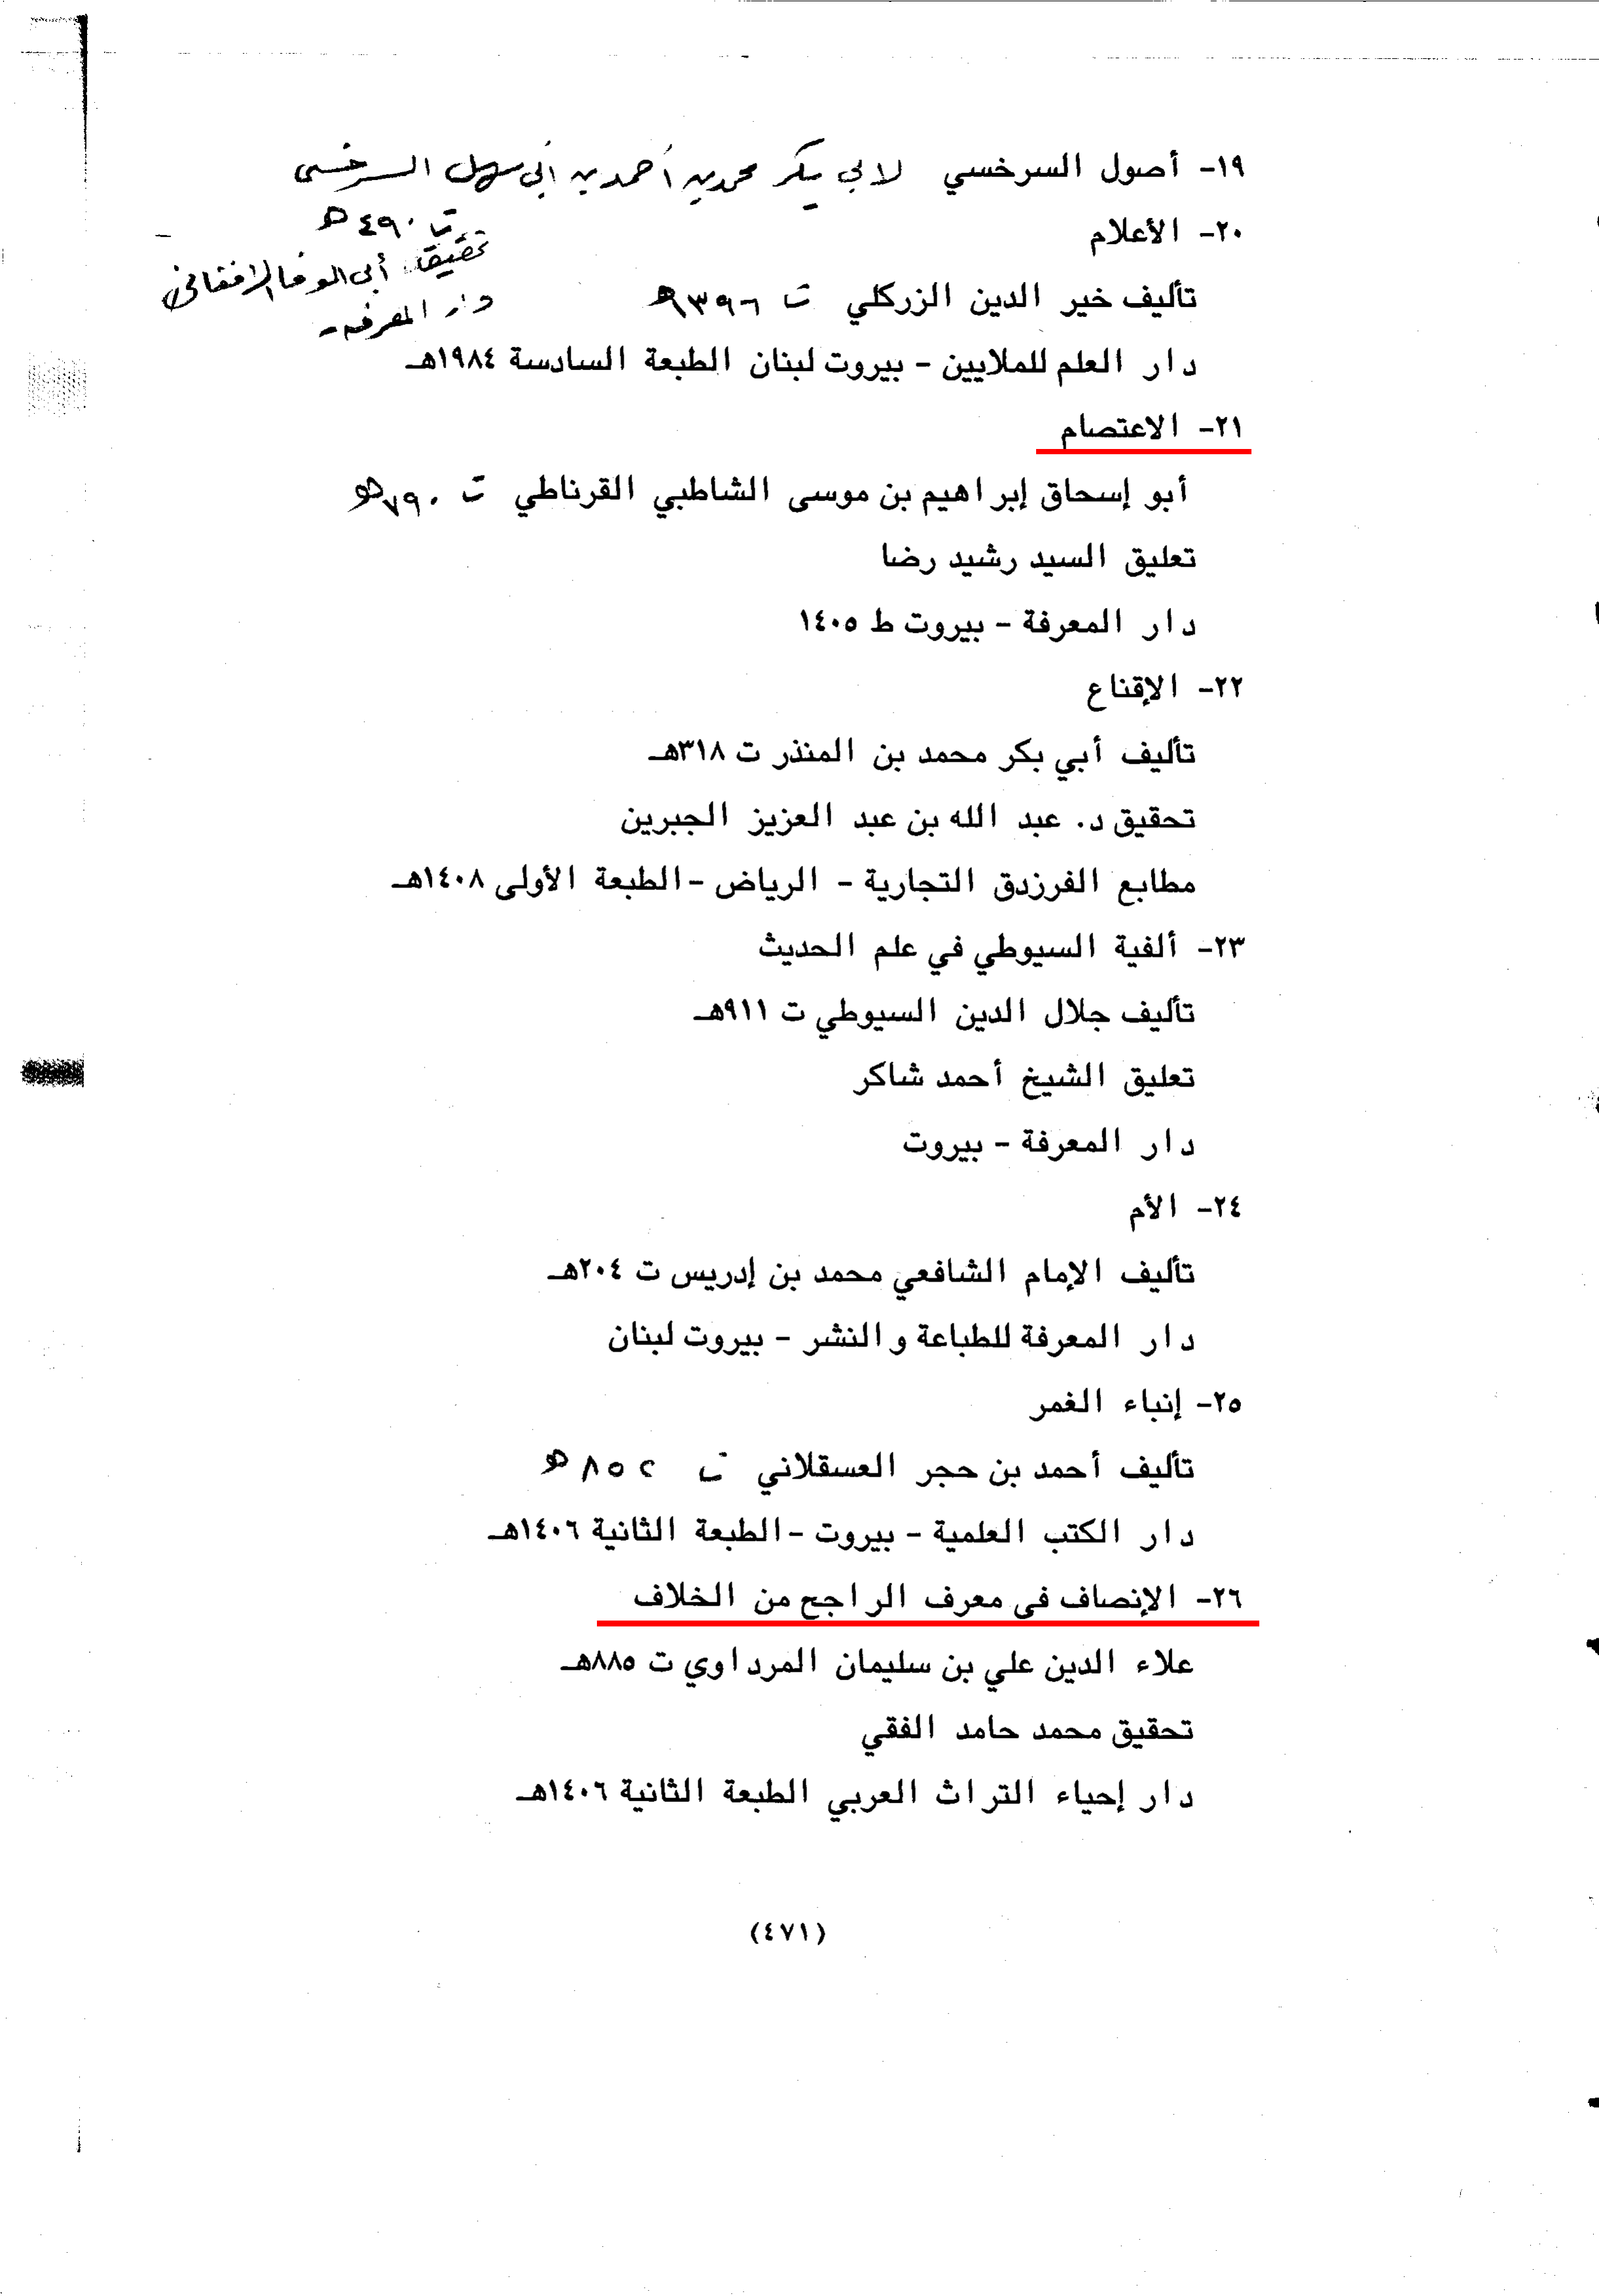 ١٩- أصول السرخسي لأبي بكر محمد بن أحمد بن أبي سهل السرخسي
ت ٤٩٠ هـ
تحقيق أبي الوفا الافغاني
دار المعرفة -
٢٠- الأعلام
تأليف خير الدين الزركلي ت ١٣٩٦هـ
دار العلم للملايين - بيروت لبنان الطبعة السادسة ١٩٨٤هـ
٢١- الاعتصام
أبو إسحاق إبراهيم بن موسى الشاطبي القرناطي ت ٧٩٠هـ
تعليق السيد رشيد رضا
دار المعرفة - بيروت ط ١٤٠٥
٢٢- الإقناع
تأليف أبي بكر محمد بن المنذر ت ٣١٨هـ
تحقيق د. عبد الله بن عبد العزيز الجبرين
مطابع الفرزدق التجارية - الرياض -الطبعة الأولى ١٤٠٨هـ
٢٣- ألفية السيوطي في علم الحديث
تأليف جلال الدين السيوطي ت ٩١١هـ
تعليق الشيخ أحمد شاكر
دار المعرفة - بيروت
٢٤- الأم
تأليف الإمام الشافعي محمد بن إدريس ت ٢٠٤هـ
دار المعرفة للطباعة والنشر - بيروت لبنان
٢٥- إنباء الغمر
تأليف أحمد بن حجر العسقلاني ت ٨٥٢ هـ
دار الكتب العلمية - بيروت -الطبعة الثانية ١٤٠٦هـ
٢٦- الإنصاف في معرف الراجح من الخلاف
علاء الدين علي بن سليمان المرداوي ت ٨٨٥هـ
تحقيق محمد حامد الفقي
دار إحياء التراث العربي الطبعة الثانية ١٤٠٦هـ
(٤٧١)